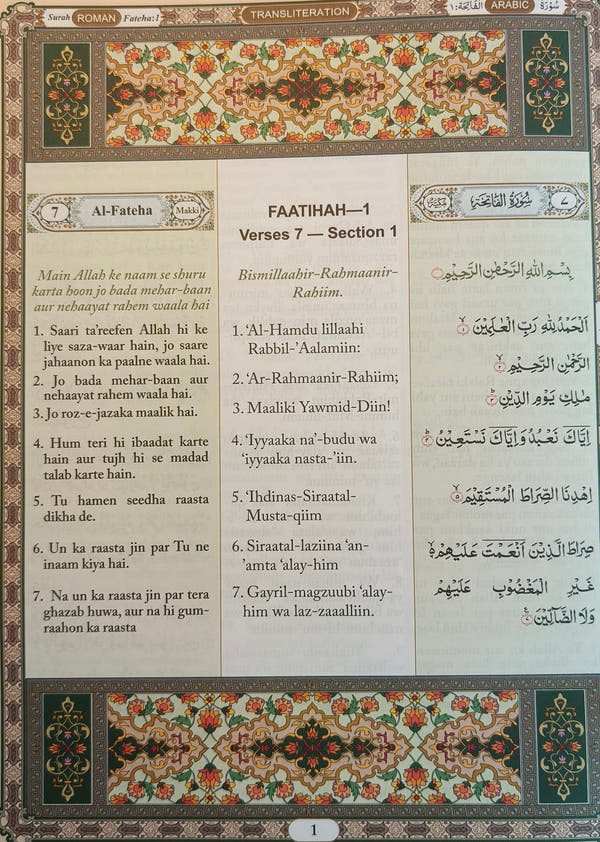 Surah ROMAN Fateha:1
TRANSLITERATION
الفَاتِحَة:١ ARABIC سُوْرَة
7 Al-Fateha Makki
Main Allah ke naam se shuru
karta hoon jo bada mehar-baan
aur nehaayat rahem waala hai
1. Saari ta'reefen Allah hi ke
liye saza-waar hain, jo saare
jahaanon ka paalne waala hai.
2. Jo bada mehar-baan aur
nehaayat rahem waala hai.
3. Jo roz-e-jazaka maalik hai.
4. Hum teri hi ibaadat karte
hain aur tujh hi se madad
talab karte hain.
5. Tu hamen seedha raasta
dikha de.
6. Un ka raasta jin par Tu ne
inaam kiya hai.
7. Na un ka raasta jin par tera
ghazab huwa, aur na hi gum-
raahon ka raasta
FAATIHAH—1
Verses 7 — Section 1
Bismillaahir-Rahmaanir-
Rahiim.
1. ‘Al-Hamdu lillaahi
Rabbil-’Aalamiin:
2. ‘Ar-Rahmaanir-Rahiim;
3. Maaliki Yawmid-Diin!
4. ‘Iyyaaka na’-budu wa
‘iyyaaka nasta-’iin.
5. ‘Ihdinas-Siraatal-
Musta-qiim
6. Siraatal-laziina ‘an-
’amta ‘alay-him
7. Gayril-magzuubi ‘alay-
him wa laz-zaaalliin.
٧ سُوْرَةُ الْفَاتِحَةِ مَكِّيَّةٌ
بِسْمِ اللّٰهِ الرَّحْمٰنِ الرَّحِيْمِ
اَلْحَمْدُ لِلّٰهِ رَبِّ الْعٰلَمِيْنَ ١
الرَّحْمٰنِ الرَّحِيْمِ ٢
مٰلِكِ يَوْمِ الدِّيْنِ ٣
اِيَّاكَ نَعْبُدُ وَاِيَّاكَ نَسْتَعِيْنُ ٤
اِهْدِنَا الصِّرَاطَ الْمُسْتَقِيْمَ ٥
صِرَاطَ الَّذِيْنَ اَنْعَمْتَ عَلَيْهِمْ ٦
غَيْرِ الْمَغْضُوْبِ عَلَيْهِمْ
وَلَا الضَّآلِّيْنَ
1